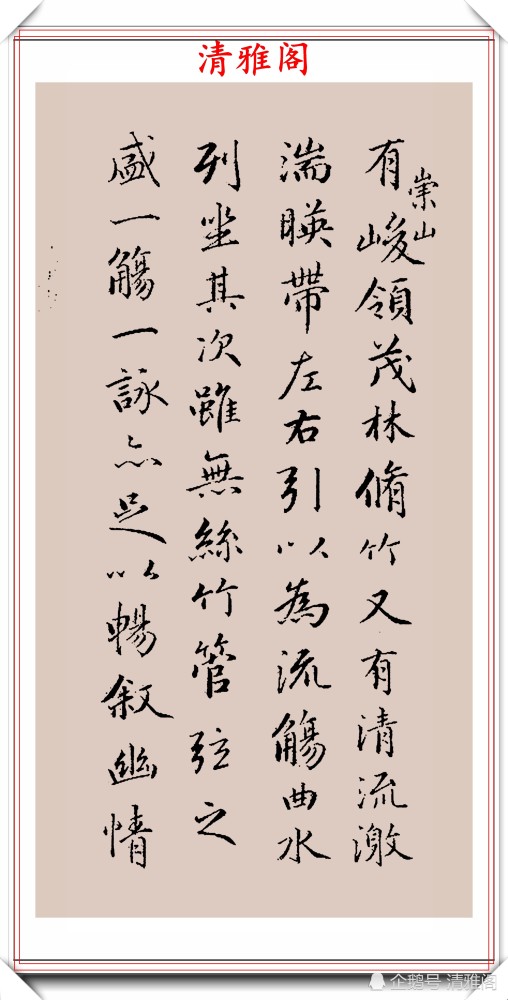 清雅阁
有崇山峻領茂林脩竹又有清流激
湍暎帶左右引以為流觴曲水
列坐其次雖無絲竹管弦之
盛一觴一詠亦足以暢叙幽情
企鹅号 清雅阁